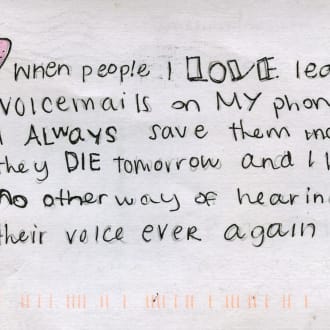 When people I LOVE lea
voicemails on MY phon
I ALWAYS save them
they DIE tomorrow and I
no other way of hearin
their voice ever again